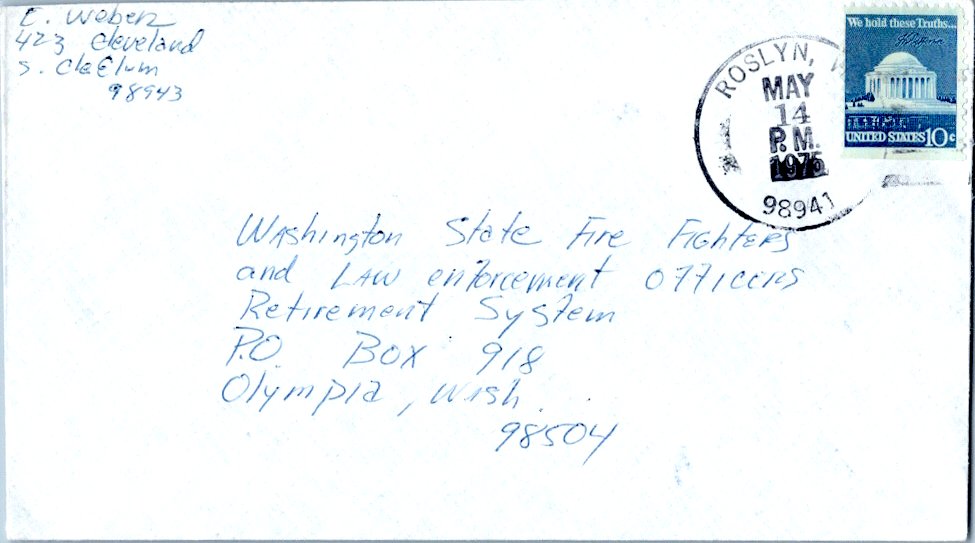 E. Weber
423 Cleveland
S. CleElum
98943
ROSLYN, W
MAY
14
P.M.
1975
98941
We hold these Truths...
UNITED STATES 10c
Washington State Fire Fighters
and Law enforcement Officers
Retirement System
P.O. Box 918
Olympia, Wash.
98504